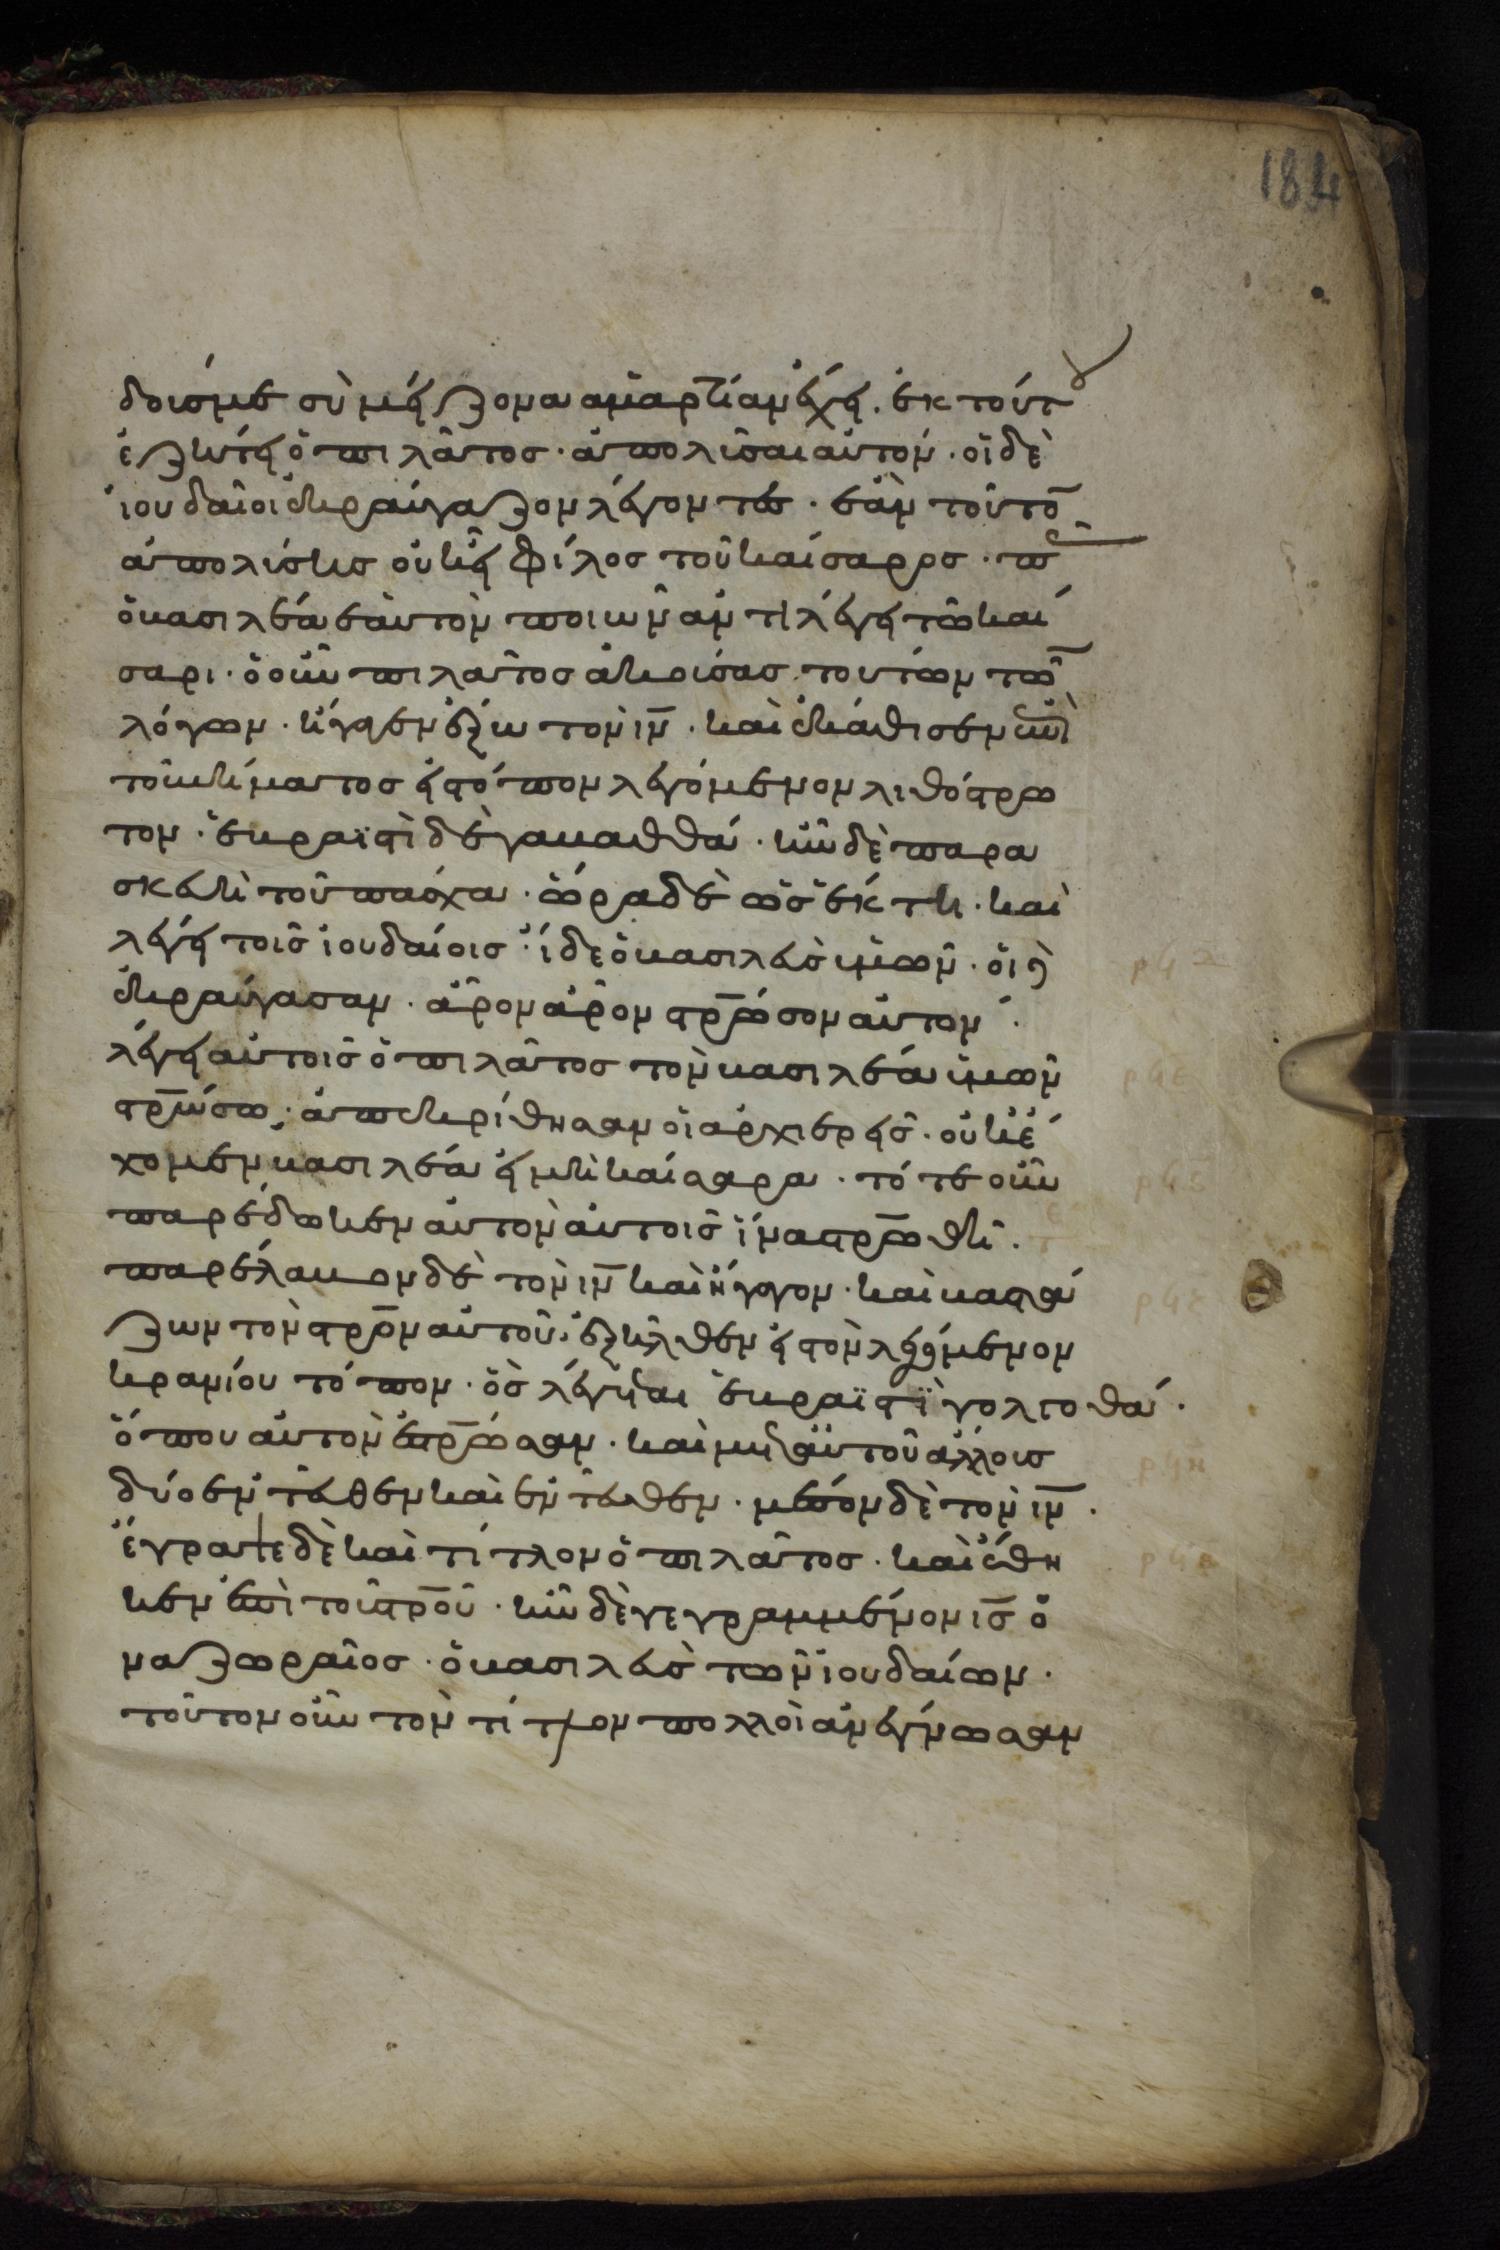 184
δούσμε σὺ μείζονα ἁμαρτίαν ἔχει. ἐκ τούτου
ἐζήτει ὁ πιλᾶτος· ἀπολῦσαι αὐτόν· οἱ δὲ
ἰουδαῖοι ἐκραύγαζον λέγοντες· ἐὰν τοῦτον
ἀπολύσης οὐκ εἶ φίλος τοῦ καίσαρος· πᾶς
ὁ βασιλέα ἑαυτὸν ποιῶν ἀντιλέγει τῶ καί
σαρι· ὁ οὖν πιλᾶτος ἀκούσας τούτων τῶν
λόγων· ἤγαγεν ἔξω τὸν ιν̅· καὶ ἐκάθισεν ἐπὶ
τοῦ βήματος εἰς τόπον λεγόμενον λιθόστρω
τον· ἑβραϊστὶ δὲ γαβαθθά· ἦν δὲ παρα
σκευὴ τοῦ πάσχα· ὥρα δὲ ὡς ἕκτη· καὶ
λέγει τοῖς ἰουδαίοις· ἴδε ὁ βασιλεὺς ὑμῶν· οἱ δὲ
ἐκραύγασαν· ἆρον ἆρον στρ̅ωσον αὐτόν·
λέγει αὐτοῖς ὁ πιλᾶτος τὸν βασιλέα ὑμῶν
στρ̅ώσω; ἀπεκρίθησαν οἱ ἀρχιερεῖς· οὐκ ἔ
χομεν βασιλέα εἰ μὴ καίσαρα· τότε οὖν
παρέδωκεν αὐτὸν αὐτοῖς ἵνα στρ̅ωθῆ·
παρέλαβον δὲ τὸν ιν̅ καὶ ἤγαγον· καὶ βαστά
ζων τὸν στρ̅ον αὐτοῦ· ἐξῆλθεν εἰς τὸν λεγόμενον
κρανίου τόπον· ὃς λέγεται ἑβραϊστὶ γολγοθά·
ὅπου αὐτὸν ἐστρ̅ωσαν· καὶ μετ αὐτοῦ ἄλλους
δύο ἐντεῦθεν καὶ ἐντεῦθεν· μέσον δὲ τὸν ιν̅·
ἔγραψε δὲ καὶ τίτλον ὁ πιλᾶτος· καὶ ἔθη
κεν ἐπὶ τοῦ στρ̅οῦ· ἦν δὲ γεγραμμένον ις̅ ὁ
ναζωραῖος· ὁ βασιλεὺς τῶν ἰουδαίων·
τοῦτον οὖν τὸν τίτλον πολλοὶ ἀνέγνωσαν